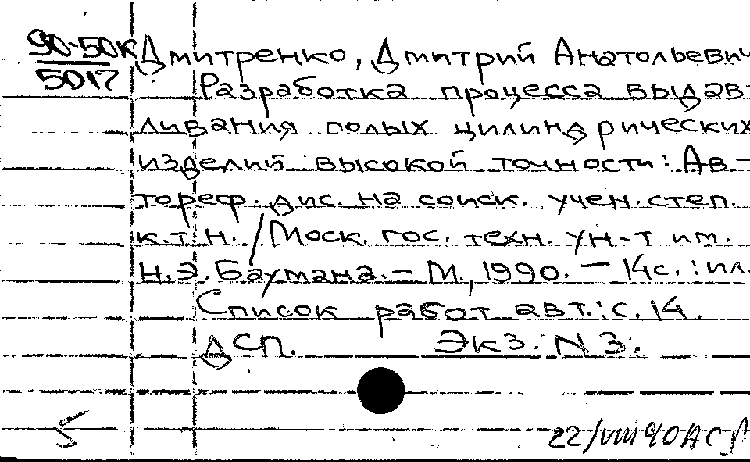 90-50К Дмитренко, Дмитрий Анатольевич
5017
Разработка процесса выдав-
ливания полых цилиндрических
изделий высокой точности: Ав-
тореф. дис. на соиск. учен. степ.
к.т.н. / Моск. гос. техн. ун-т им.
Н.Э. Баумана. – М., 1990. – 14с. : ил.
Список работ авт.: с. 14.
ДСП. Экз. N 3.
5
22/VIII 90